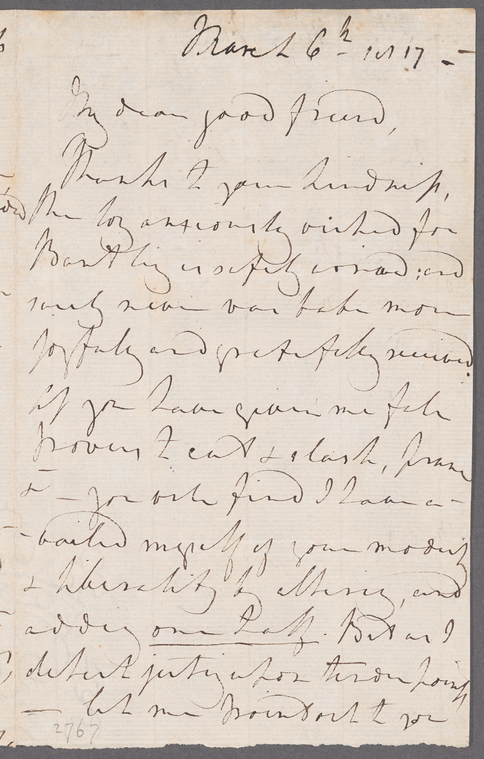 March 6th 1817 -
My dear good friend,
Thanks to your kindness,
the long anxiously wished for
Bantling is safely arrived: and
surely never was babe more
joyfully and gratefully received.
As you have given me full
powers to cut & slash, prune
& - you will find I have a-
-vailed myself of your modesty
& liberality by altering, and
adding one half. But as I
detest upon tender points
- let me to you
2767